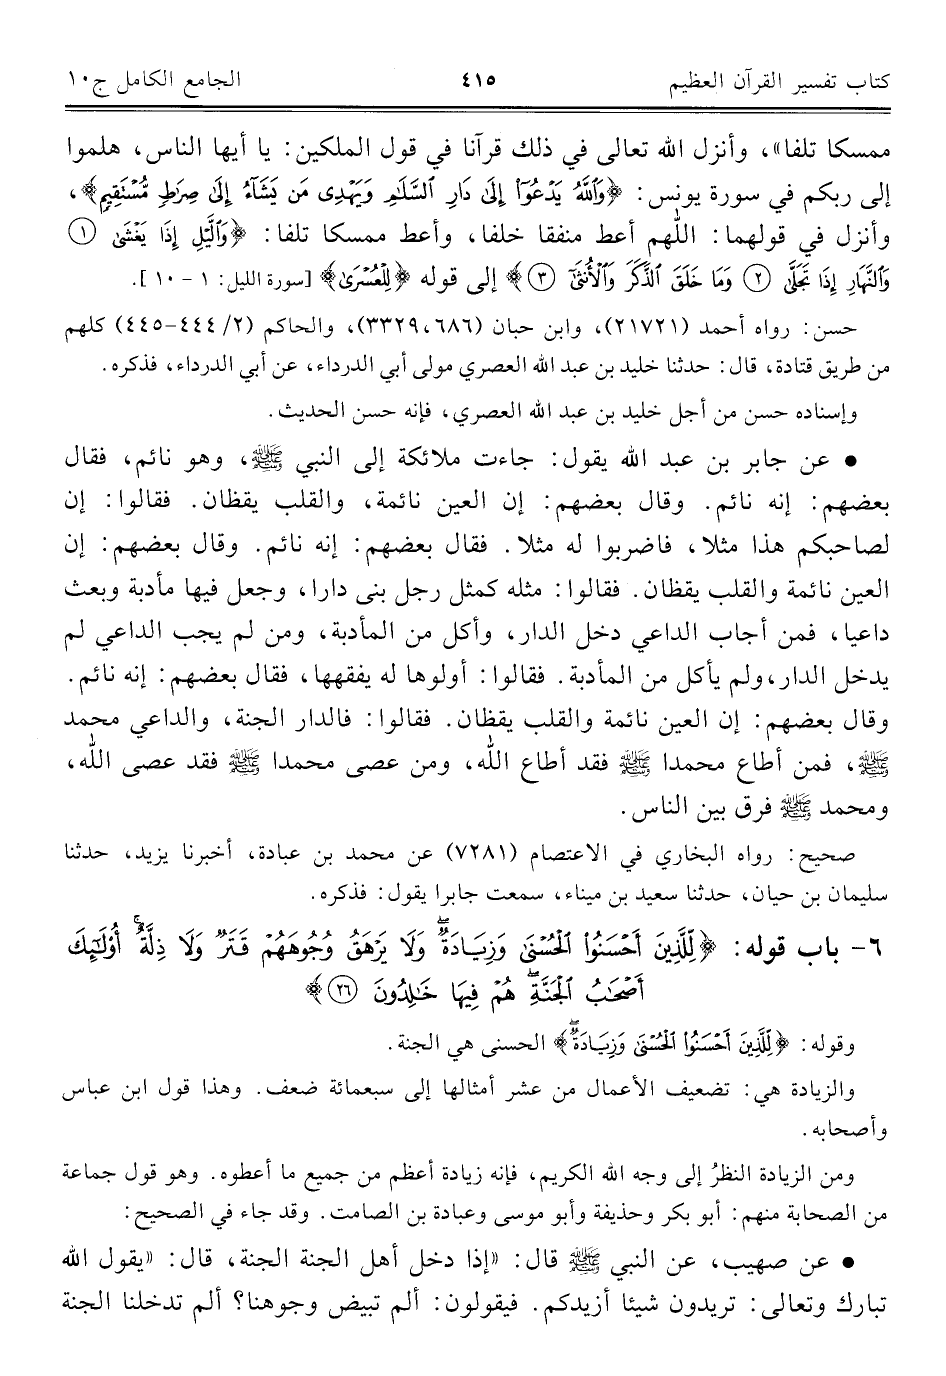 كتاب تفسير القرآن العظيم ٤١٥ الجامع الكامل ج١٠
ممسكا تلفا»، وأنزل الله تعالى في ذلك قرآنا في قول الملكين: يا أيها الناس، هلموا
إلى ربكم في سورة يونس: ﴿وَٱللَّهُ يَدْعُوٓا۟ إِلَىٰ دَارِ ٱلسَّلَـٰمِ وَيَهْدِى مَن يَشَآءُ إِلَىٰ صِرَٰطٍ مُّسْتَقِيمٍ﴾،
وأنزل في قولهما: اللّهم أعط منفقا خلفا، وأعط ممسكا تلفا: ﴿وَٱلَّيْلِ إِذَا يَغْشَىٰ ١
وَٱلنَّهَارِ إِذَا تَجَلَّىٰ ٢ وَمَا خَلَقَ ٱلذَّكَرَ وَٱلْأُنثَىٰٓ ٣﴾ إلى قوله ﴿لِلْعُسْرَىٰ﴾ [سورة الليل: ١ - ١٠].
حسن: رواه أحمد (٢١٧٢١)، وابن حبان (٦٨٦، ٣٣٢٩)، والحاكم (٢/ ٤٤٤-٤٤٥) كلهم
من طريق قتادة، قال: حدثنا خليد بن عبد الله العصري مولى أبي الدرداء، عن أبي الدرداء، فذكره.
وإسناده حسن من أجل خليد بن عبد الله العصري، فإنه حسن الحديث.
• عن جابر بن عبد الله يقول: جاءت ملائكة إلى النبي ﷺ، وهو نائم، فقال
بعضهم: إنه نائم. وقال بعضهم: إن العين نائمة، والقلب يقظان. فقالوا: إن
لصاحبكم هذا مثلا، فاضربوا له مثلا. فقال بعضهم: إنه نائم. وقال بعضهم: إن
العين نائمة والقلب يقظان. فقالوا: مثله كمثل رجل بنى دارا، وجعل فيها مأدبة وبعث
داعيا، فمن أجاب الداعي دخل الدار، وأكل من المأدبة، ومن لم يجب الداعي لم
يدخل الدار، ولم يأكل من المأدبة. فقالوا: أولوها له يفقهها، فقال بعضهم: إنه نائم.
وقال بعضهم: إن العين نائمة والقلب يقظان. فقالوا: فالدار الجنة، والداعي محمد
ﷺ، فمن أطاع محمدا ﷺ فقد أطاع اللّه، ومن عصى محمدا ﷺ فقد عصى اللّه،
ومحمد ﷺ فرق بين الناس.
صحيح: رواه البخاري في الاعتصام (٧٢٨١) عن محمد بن عبادة، أخبرنا يزيد، حدثنا
سليمان بن حيان، حدثنا سعيد بن ميناء، سمعت جابرا يقول: فذكره.
٦- باب قوله: ﴿لِّلَّذِينَ أَحْسَنُوا۟ ٱلْحُسْنَىٰ وَزِيَادَةٌ ۖ وَلَا يَرْهَقُ وُجُوهَهُمْ قَتَرٌ وَلَا ذِلَّةٌ ۚ أُو۟لَـٰٓئِكَ
أَصْحَـٰبُ ٱلْجَنَّةِ ۖ هُمْ فِيهَا خَـٰلِدُونَ ٢٦﴾
وقوله: ﴿لِّلَّذِينَ أَحْسَنُوا۟ ٱلْحُسْنَىٰ وَزِيَادَةٌ ۖ﴾ الحسنى هي الجنة.
والزيادة هي: تضعيف الأعمال من عشر أمثالها إلى سبعمائة ضعف. وهذا قول ابن عباس
وأصحابه.
ومن الزيادة النظرُ إلى وجه الله الكريم، فإنه زيادة أعظم من جميع ما أعطوه. وهو قول جماعة
من الصحابة منهم: أبو بكر وحذيفة وأبو موسى وعبادة بن الصامت. وقد جاء في الصحيح:
• عن صهيب، عن النبي ﷺ قال: «إذا دخل أهل الجنة الجنة، قال: «يقول الله
تبارك وتعالى: تريدون شيئا أزيدكم. فيقولون: ألم تبيض وجوهنا؟ ألم تدخلنا الجنة